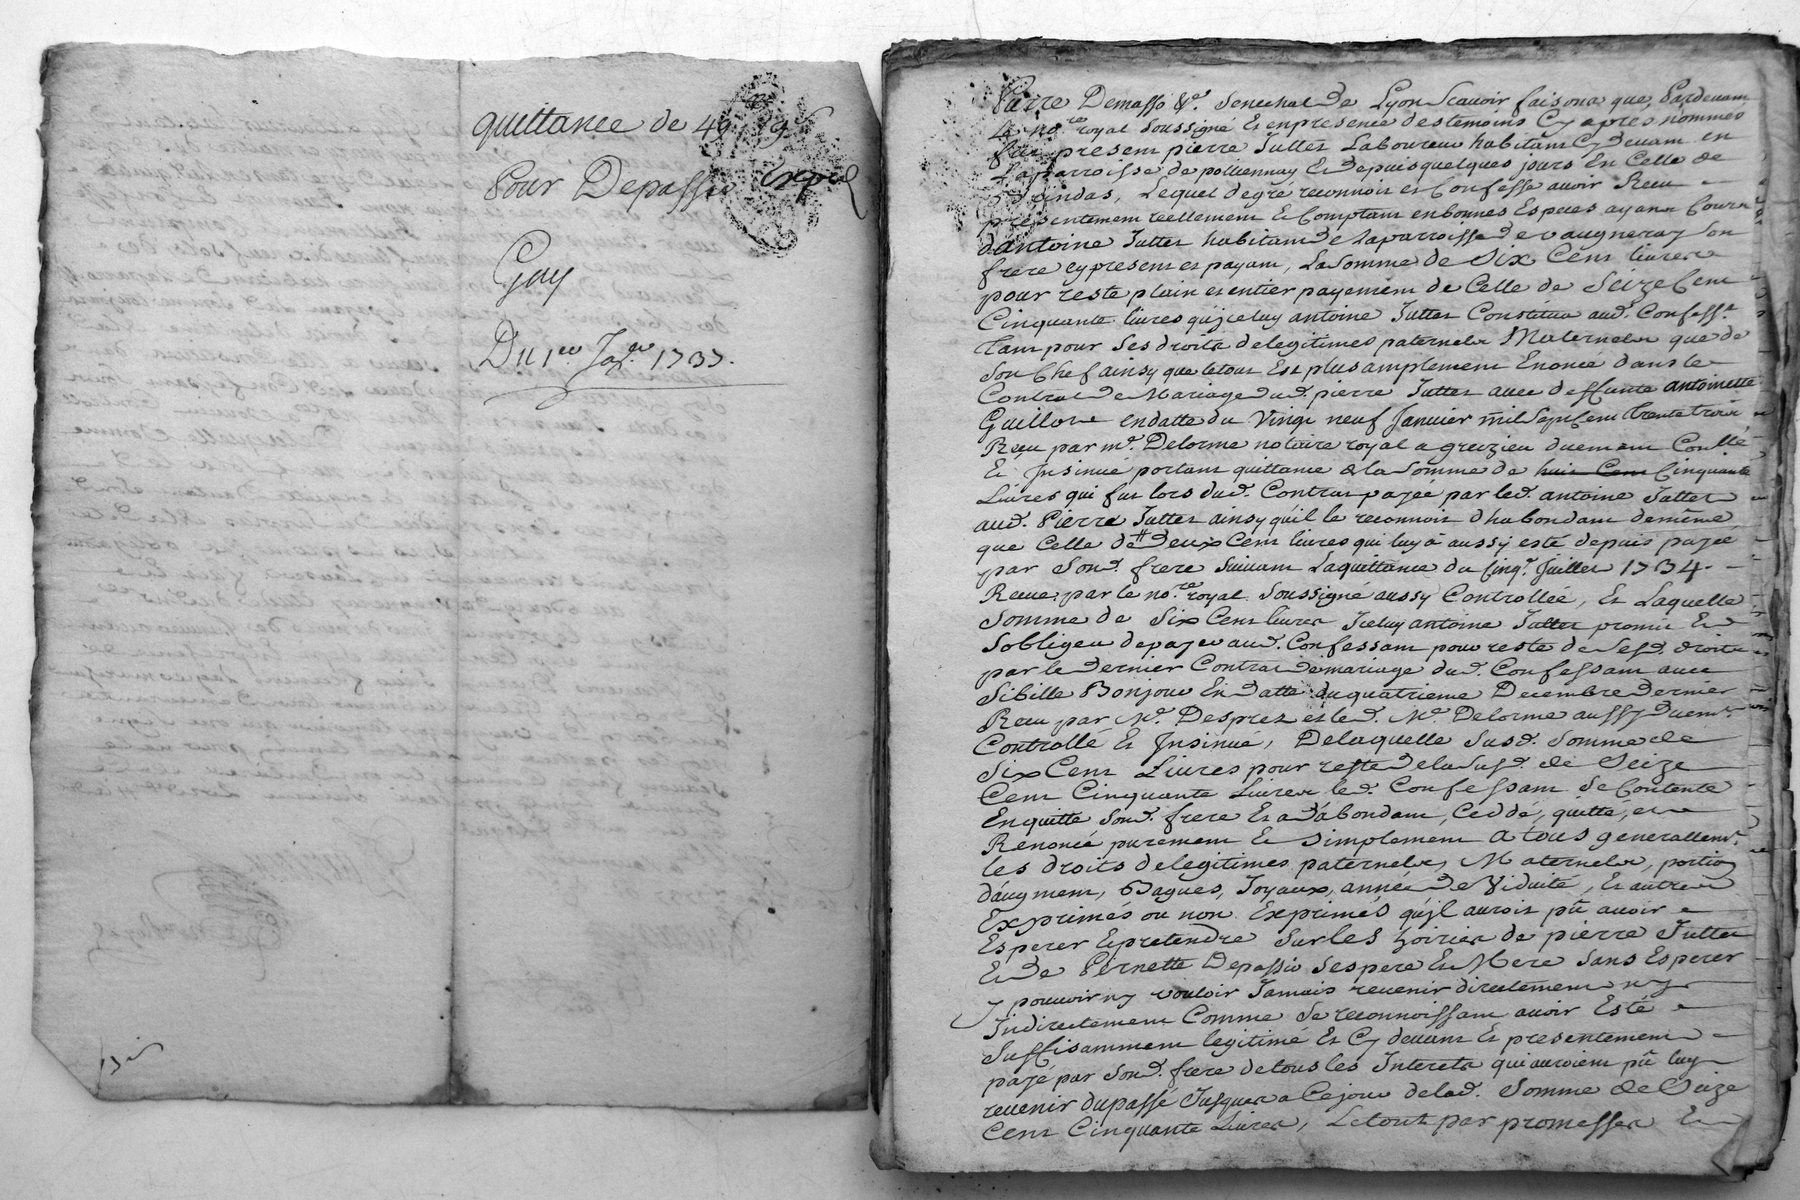 quittance de 49 19s
Pour Depassio expéd
Guy
Du 1er Jaer 1737.
13
Pierre Demasso &r. Senechal de Lyon Scavoir faisons que Pardevant
Le nore royal Soussigné Et enpresence des temoins Cy apres nommés
fut present pierre Jullet Laboureur habitant Cy devant en
La parroisse de pollionnay et depuis quelques jours En Celle de
Brindas, Lequel de gré reconnoit et Confesse avoir Receu
presentement reellement Et Comptant en bonnes Especes ayant Cours
d'antoine Jullet habitant de la parroisse de vaugneray Son
frere cy present et payant, La Somme de Six Cent livres
pour reste plain et entier payement de Celle de Seize Cent
Cinquante livres qu'jceluy antoine Jullet Constitua aud. Confesst
tant pour Ses droits de legitimes paternels Maternels que de
Son Chef ainsy que le tout Est plus amplement Enoncé dans le
Contrat de Mariage dud. pierre Jullet avec deffunte antoinette
Guillon en datte du Vingt neuf Janvier mil Sept Cent trente trois
Receu par me. Delorme notaire royal a grezieu duement Conllé
Et Jnsinué portant quittance de la Somme de huit Cent Cinquante
Livres qui fut lors dud. Contrat payée par led. antoine Jullet
aud. Pierre Jullet ainsy qu'il le reconnoit d'habondant de même
que Celle de deux Cent livres qui luy a aussy esté depuis payée
par Sond. frere Suivant La quittance du Cinqe. Juillet 1734.
Receue par le nore. royal Soussigné aussy Controllée, Et Laquelle
Somme de Six Cent livres Jceluy antoine Jullet promit Et
S'obligea de payer aud. Confessant pour reste de Sesd. droits
par le dernier Contrat de mariage dud. Confessant avec
Sibille Bonjour En datte du quatrieme Decembre dernier
Receu par Me. Desprez et led. Me. Delorme aussy duemt.
Controllé Et Jnsinué, De laquelle Susd. Somme de
Six Cent Livres pour reste de la Susd. de Seize
Cent Cinquante Livres led. Confessant Se Contente
En quitte Sond. frere Et a d'abondant, Ceddé, quitté, et
Renoncé purement Et Simplement a tous generallemt.
les droits de legitimes paternels, Maternels, portion
d'augment, Bagues, Joyaux, année de Viduité, Et autres
Exprimés ou non Exprimés qu'jl auroit pû avoir
Esperer Et pretendre Sur les hoiries de pierre Jullet
Et de Pernette Depassio Ses pere Et Mere Sans Esperer
y pouvoir ny vouloir Jamais revenir directement ny
Jndirectement Comme Se reconnoissant avoir Esté
Suffisamment legitimé Et Cy devant Et presentement
payé par Sond. frere de tous les Interets qui auroient pû luy
revenir du passé Jusques a Ce jour de lad. Somme de Seize
Cent Cinquante Livres, Le tout par promesses Et